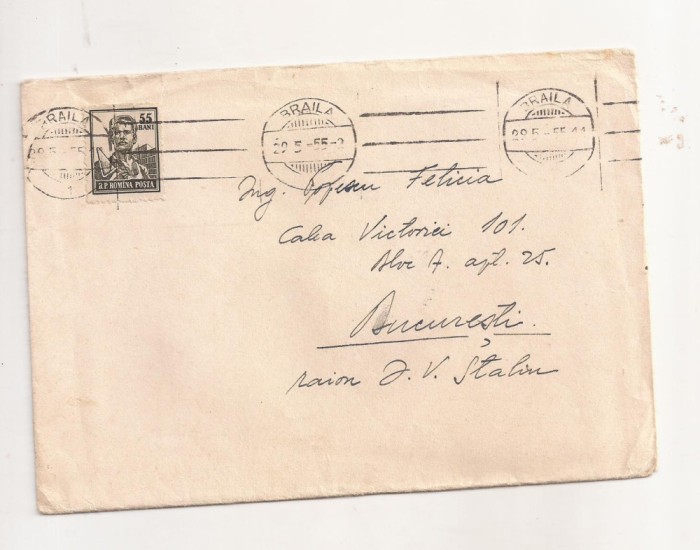 BRAILA
29.5.-55
1
55
BANI
R.P. ROMINA POSTA
BRAILA
29.5.-55-2
BRAILA
29.5.-55
Ing. Popescu Felicia
Calea Victoriei 101.
Bloc A. apt. 25.
București.
raion I. V. Stalin